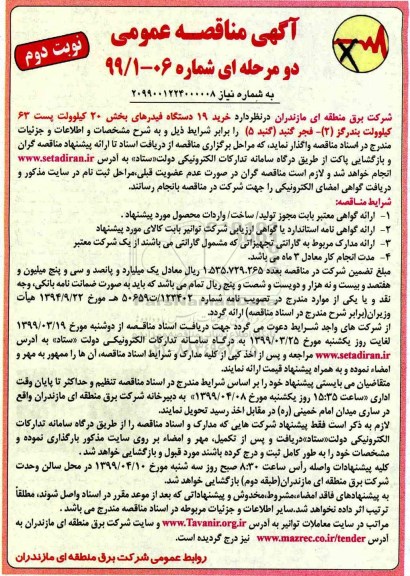 آگهی مناقصه عمومی
دو مرحله ای شماره ۰۶-۹۹/۱
نوبت دوم
به شماره نیاز ۲۰۹۹۰۰۱۲۲۴۰۰۰۰۰۸
شرکت برق منطقه ای مازندران درنظردارد خرید ۱۹ دستگاه فیدرهای بخش ۲۰ کیلوولت پست ۶۳
کیلوولت بندرگز (۲)- فجر گنبد (گنبد ۵) را برابر شرایط ذیل و به شرح مشخصات و اطلاعات و جزئیات
مندرج در اسناد مناقصه واگذار نماید، که مراحل برگزاری مناقصه از دریافت اسناد تا ارائه پیشنهاد مناقصه گران
و بازگشایی پاکت از طریق درگاه سامانه تدارکات الکترونیکی دولت«ستاد» به آدرس www.setadiran.ir
انجام خواهد شد و لازم است مناقصه گران در صورت عدم عضویت قبلی،مراحل ثبت نام در سایت مذکور و
دریافت گواهی امضای الکترونیکی را جهت شرکت در مناقصه بانجام رسانند.
شرایط مناقصه:
۱- ارائه گواهی معتبر بابت مجوز تولید/ ساخت/ واردات محصول مورد پیشنهاد .
۲- ارائه گواهی نامه استاندارد یا گواهی ارزیابی شرکت توانیر بابت کالای مورد پیشنهاد
۳- ارائه مدارک مربوط به گارانتی تجهیزاتی که مشمول گارانتی می باشند از یک شرکت معتبر
۴- مدت انجام کار معادل ۳ ماه می باشد.
مبلغ تضمین شرکت در مناقصه بعدد ۱.۵۳۵.۷۲۹.۲۶۵ ریال معادل یک میلیارد و پانصد و سی و پنج میلیون و
هفتصد و بیست و نه هزار و دویست و شصت و پنج ریال تمام می باشد که باید به صورت ضمانت نامه بانکی، وجه
نقد و یا یکی از موارد مندرج در تصویب نامه شماره ۱۲۳۴۰۲/ت۵۰۶۵۹ هـ مورخ ۱۳۹۴/۹/۲۲ هیأت
وزیران(برابر شرح مندرج در اسناد مناقصه) ارائه گردد.
از شرکت های واجد شرایط دعوت می گردد جهت دریافت اسناد مناقصه از دوشنبه مورخ ۱۳۹۹/۰۳/۱۹
لغایت روز یکشنبه مورخ ۱۳۹۹/۰۳/۲۵ به درگاه سامانه تدارکات الکترونیکی دولت «ستاد» به آدرس
www.setadiran.ir مراجعه و پس از اخذ کپی از کلیه مدارک و شرایط اسناد مناقصه، آن ها را ممهور به مهر و
امضاء نموده و به همراه پیشنهاد قیمت ارائه نمایند.
متقاضیان می بایستی پیشنهاد خود را بر اساس شرایط مندرج در اسناد مناقصه تنظیم و حداکثر تا پایان وقت
اداری «ساعت ۱۵:۳۵ روز یکشنبه مورخ ۱۳۹۹/۰۴/۰۸» به دبیرخانه شرکت برق منطقه ای مازندران واقع
در ساری میدان امام خمینی (ره) در مقابل اخذ رسید تحویل نمایند.
لازم به ذکر است فقط پیشنهاد شرکت هایی که مدارک و اسناد مناقصه را از طریق درگاه سامانه تدارکات
الکترونیکی دولت«ستاد»دریافت و پس از تکمیل، مهر و امضاء بر روی سایت مذکور بارگذاری نموده و
مشخصات خود را به طور کامل ثبت و درج کرده باشند مورد قبول و بازگشایی خواهد شد .
کلیه پیشنهادات واصله رأس ساعت ۸:۳۰ صبح روز سه شنبه مورخ ۱۳۹۹/۰۴/۱۰ در محل سالن وحدت
شرکت برق منطقه ای مازندران(طبقه دوم) بازگشایی خواهد شد.
به پیشنهادهای فاقد امضاء،مشروط،مخدوش و پیشنهاداتی که بعد از موعد مقرر در اسناد واصل شوند، مطلقاً
ترتیب اثر داده نخواهد شد.سایر اطلاعات و جزئیات مربوطه در اسناد مناقصه مندرج می باشد .
مراتب در سایت معاملات توانیر به آدرس www.Tavanir.org.ir و سایت شرکت برق منطقه ای مازندران به
آدرس www.mazrec.co.ir/tender نیز درج گردیده است.
روابط عمومی شرکت برق منطقه ای مازندران